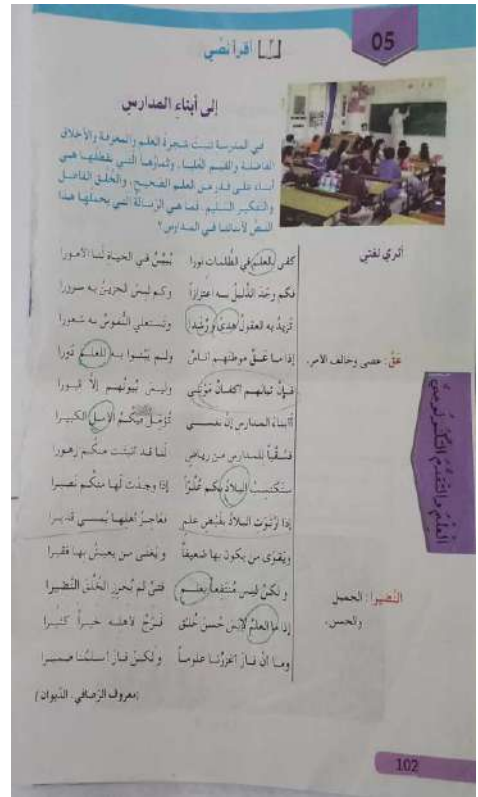 05
أقرأ نصّي
إلى أبناءِ المدارسِ
في المدرسة تنبت شجرة العلم والمعرفة والأخلاق
الفاضلة والقيم العليا، وثمارها التي يقطفها هي
أبناء على قدر من العلم الصحيح، والخلق الفاضل
والتفكير السّليم. فما هي الرّسالة التي يحملها هذا
النصّ لأبنائنا في المدارس؟
أثري لغتي
كفى بالعلم في الظّلمات نورا يُبيّن في الحياة لنا الأمورا
فكم وجد الذّليل به اعتزازاً وكم لبس الحزين به سرورا
تزيد به العقول هدىً ورُشداً وتستعلي النّفوس به شعورا
عَقَّ: عصى وخالف الأمر.
إذا ما عَقَّ موطنهم أناسٌ ولم يبنوا به للعلم دورا
فإنّ ثيابهم أكفان موتى وليس بيوتهم إلاّ قبورا
أأبناء المدارس إنّ نفسي تؤمّل فيكم الأمل الكبيرا
فسُقياً للمدارس من رياضٍ لنا قد أنبتت منكم زهورا
ستكتسب البلاد بكم عُلُوّاً إذا وجدت لها منكم نصيرا
إذا ارتوت البلاد بفيض علمٍ فعاجز أهلها يُمسي قديرا
ويَقوى من يكون بها ضعيفاً ويَغنى من يعيش بها فقيرا
ولكن ليس مُنتفعاً بعلمٍ فتىً لم يُحرز الخُلق النّضيرا
النّضيرا: الجميل
والحسن.
إذا ما العلم لابس حُسن خُلق فَرَجِّ لأهله خيراً كثيرا
وما أن فاز أغزرنا علوماً ولكن فاز أسلمنا ضميرا
(معروف الرّصافي. الدّيوان)
العِلْمُ والتَّقدُّمُ التِّكنُولوجيُّ
102